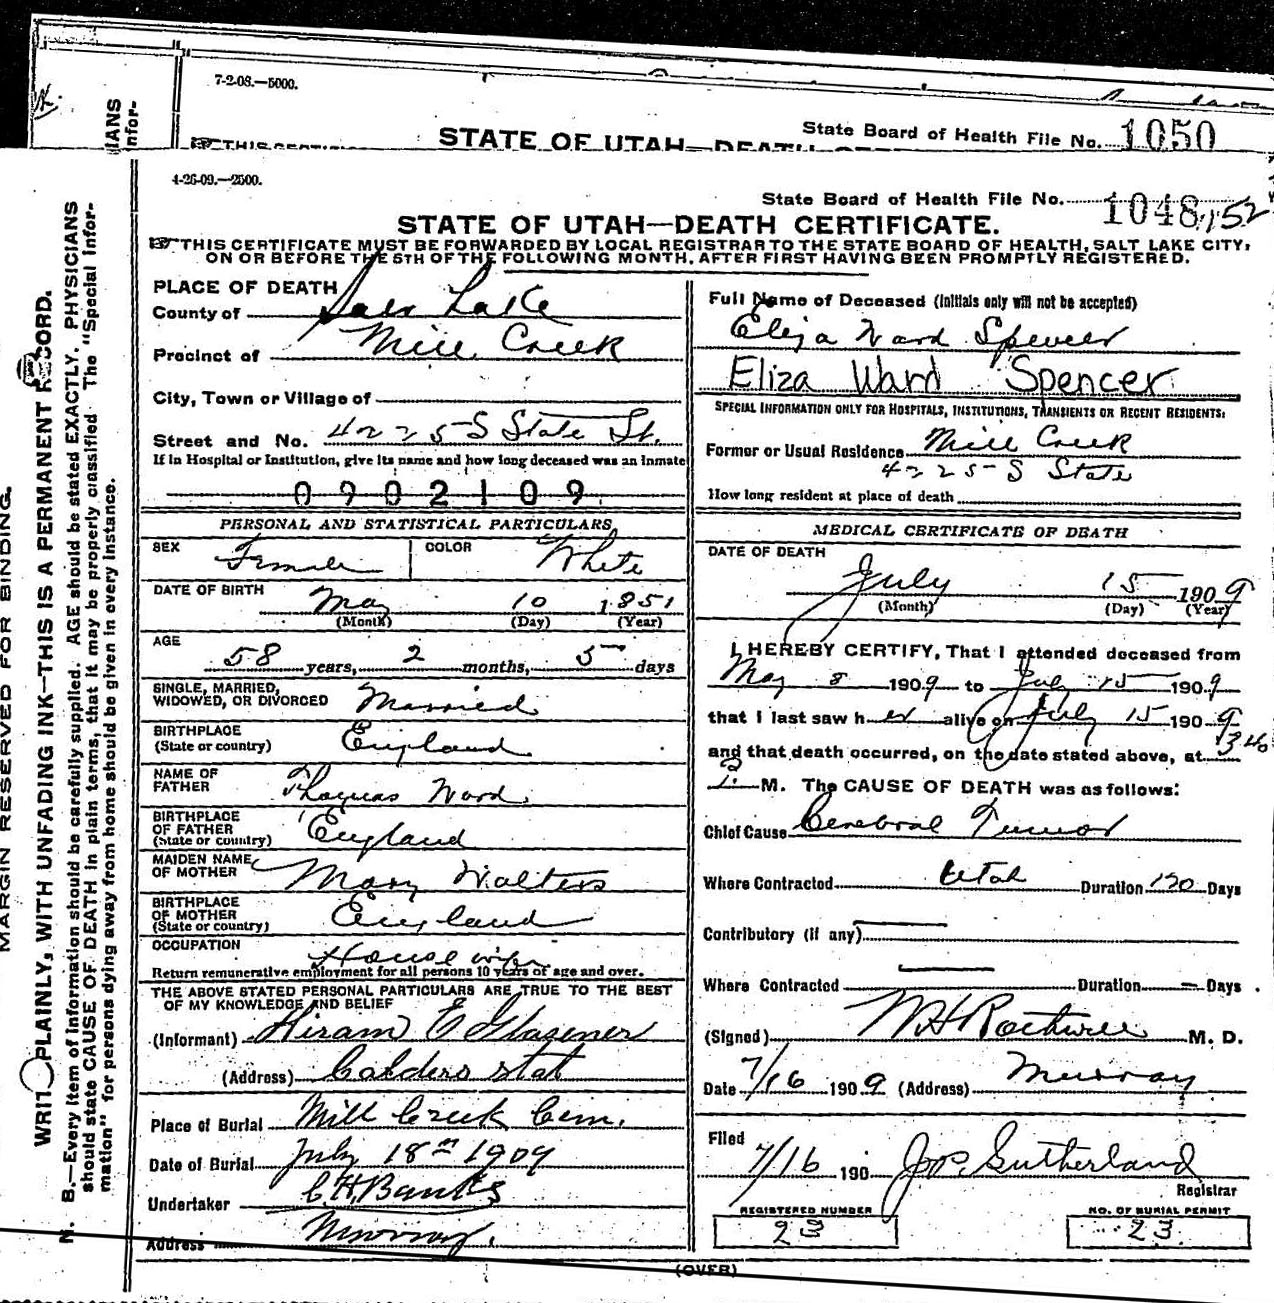 7-2-08.—5000.
State Board of Health File No. 1050
STATE OF UTAH—DEATH
IANS
infor-
4-26-09.—2500.
State Board of Health File No. 1048 152
STATE OF UTAH—DEATH CERTIFICATE.
THIS CERTIFICATE MUST BE FORWARDED BY LOCAL REGISTRAR TO THE STATE BOARD OF HEALTH, SALT LAKE CITY,
ON OR BEFORE THE 5TH OF THE FOLLOWING MONTH, AFTER FIRST HAVING BEEN PROMPTLY REGISTERED.
MARGIN RESERVED FOR BINDING.
WRITE PLAINLY, WITH UNFADING INK—THIS IS A PERMANENT RECORD.
N. B.—Every item of information should be carefully supplied. AGE should be stated EXACTLY. PHYSICIANS
should state CAUSE OF DEATH in plain terms, that it may be properly classified. The "Special Infor-
mation" for persons dying away from home should be given in every instance.
PLACE OF DEATH
County of Salt Lake
Precinct of Mill Creek
City, Town or Village of
Street and No. 4225 S State St.
If in Hospital or Institution, give its name and how long deceased was an inmate
0902109
PERSONAL AND STATISTICAL PARTICULARS
SEX Female COLOR White
DATE OF BIRTH May 10 1851
(Month) (Day) (Year)
AGE
58 years, 2 months, 5 days
SINGLE, MARRIED,
WIDOWED, OR DIVORCED Married
BIRTHPLACE
(State or country) England
NAME OF
FATHER Thomas Ward
BIRTHPLACE
OF FATHER
(State or country) England
MAIDEN NAME
OF MOTHER Mary Walters
BIRTHPLACE
OF MOTHER
(State or country) England
OCCUPATION Housewife
Return remunerative employment for all persons 10 years of age and over.
THE ABOVE STATED PERSONAL PARTICULARS ARE TRUE TO THE BEST
OF MY KNOWLEDGE AND BELIEF
(Informant) Hiram E Glasener
(Address) Calders stat
Place of Burial Mill Creek Cem.
Date of Burial July 18th 1909
Undertaker C H Banks
Address Murray.
Full Name of Deceased (Initials only will not be accepted)
Eliza Ward Spencer
Eliza Ward Spencer
SPECIAL INFORMATION ONLY FOR HOSPITALS, INSTITUTIONS, TRANSIENTS OR RECENT RESIDENTS:
Former or Usual Residence Mill Creek
4225 S State
How long resident at place of death
MEDICAL CERTIFICATE OF DEATH
DATE OF DEATH
July 15 1909
(Month) (Day) (Year)
I HEREBY CERTIFY, That I attended deceased from
May 8 1909 to July 15 1909
that I last saw her alive on July 15 1909
and that death occurred, on the date stated above, at 340
P. M. The CAUSE OF DEATH was as follows:
Chief Cause Cerebral Tumor
Where Contracted Utah Duration 120 Days
Contributory (if any)
Where Contracted Duration — Days.
(Signed) W H Rothwell M. D.
Date 7/16 1909 (Address) Murray
Filed
7/16 190 Jos Sutherland
Registrar
REGISTERED NUMBER
23
NO. OF BURIAL PERMIT
23
(OVER)